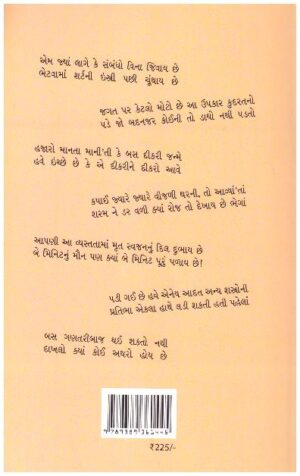 એમ જ્યાં લાગે કે સંબંધો વિના જિવાય છે
ભેટવામાં શર્ટની ઇસ્ત્રી પછી ચૂંથાય છે
જગત પર કેટલો મોટો છે આ ઉપકાર કુદરતનો
પડે જો બદનજર કોઈની તો ડાઘો નથી પડતો
હજારો માનતા માની'તી કે બસ દીકરી જન્મે
હવે ઇચ્છે છે કે એ દીકરીને દીકરો આવે
કપાઈ જ્યારે જ્યારે વીજળી ઘરની, તો આવ્યાં'તાં
શરમ ને ડર વળી ક્યાં રોજ તો દેખાય છે ભેગાં
આપણી આ વ્યસ્તતામાં મૃત સ્વજનનું દિલ દુભાય છે
બે મિનિટનું મૌન પણ ક્યાં બે મિનિટ પૂરું પળાય છે!
પડી ગઈ છે હવે એનેય આદત અન્ય શસ્ત્રોની
પ્રતિભા એકલા હાથે લડી શકતી હતી પહેલાં
બસ ગણતરીબાજ થઈ શકતો નથી
દાખલો ક્યાં કોઈ અઘરો હોય છે
₹225/-